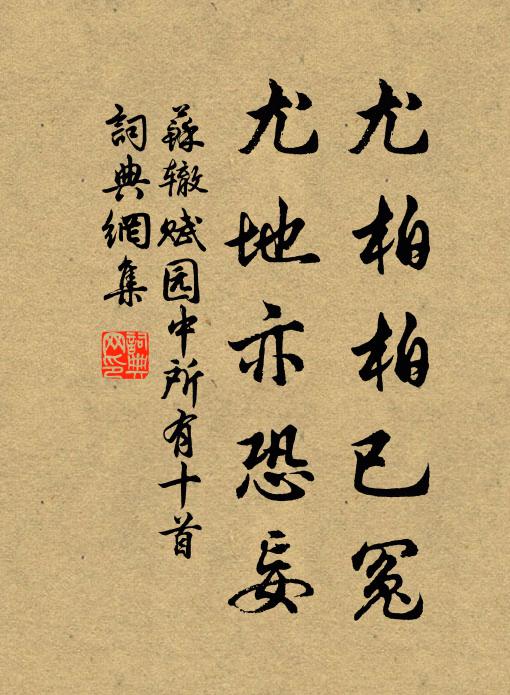 尤柏柏已冤
尤地亦恐妄
蘇辙赋园中所有十首
詞典網集
詞典网印